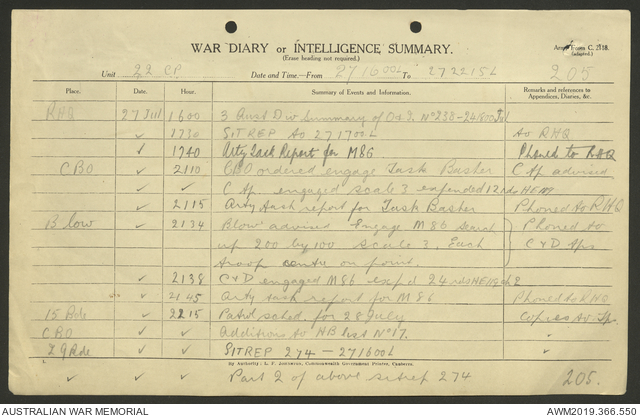 Army Form C. 2118.
(adapted.)
WAR DIARY or INTELLIGENCE SUMMARY.
(Erase heading not required.)
Unit 22 CP Date and Time—From 271600L To 272215L 205
Place. Date. Hour. Summary of Events and Information. Remarks and references to Appendices, Diaries, &c.
RHQ 27 Jul 1600 3 Aust Div Summary of Ops No 238 - 241800 Jul
✓ 1730 SITREP to 271700L to RHQ
✓ 1740 Arty task Report for M86 Phoned to RHQ
CBO ✓ 2110 CBO ordered engage Task Basher C Tp advised
✓ ✓ C Tp engaged scale 3 expended 12 rds HEM
✓ 2115 Arty task report for Task Basher Phoned to RHQ
B low ✓ 2134 Blow advised Engage M86 search Phoned to
up 200 by 100 scale 3. Each C & D Tps
troop centre on point.
✓ 2138 C&D engaged M86 exp'd 24 rds HE
✓ 2145 Arty task report for M86 Phoned to RHQ
15 Bde ✓ 2215 Patrol sched. for 28 July Copies to Tps
CBO ✓ ✓ Additions to HB list No 17. ✓
✓ ✓ SITREP 274 - 271600L ✓
By Authority: L. F. Johnston, Commonwealth Government Printer, Canberra.
✓ ✓ Part 2 of above sitrep 274 205.
AUSTRALIAN WAR MEMORIAL AWM2019.366.550